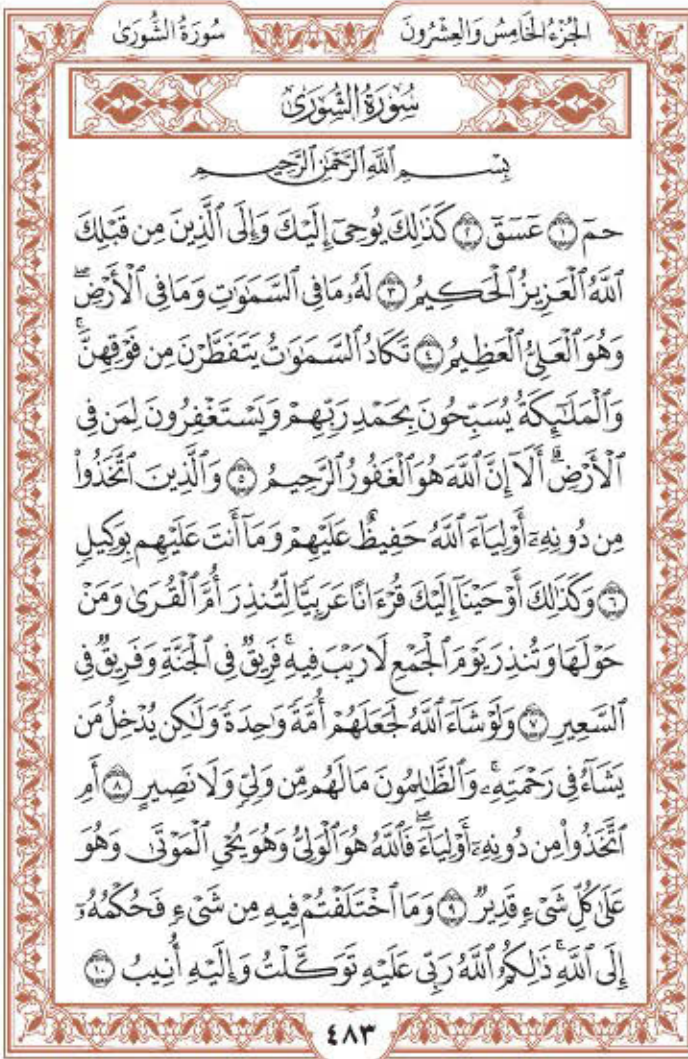 الجُزْءُ الخَامِسُ وَالعِشْرُونَ
سُورَةُ الشُّورَى
سُورَةُ الشُّورَىٰ
بِسْمِ ٱللَّهِ ٱلرَّحْمَٰنِ ٱلرَّحِيمِ
حمٓ ١ عٓسٓقٓ ٢ كَذَٰلِكَ يُوحِىٓ إِلَيْكَ وَإِلَى ٱلَّذِينَ مِن قَبْلِكَ
ٱللَّهُ ٱلْعَزِيزُ ٱلْحَكِيمُ ٣ لَهُۥ مَا فِى ٱلسَّمَٰوَٰتِ وَمَا فِى ٱلْأَرْضِۖ
وَهُوَ ٱلْعَلِىُّ ٱلْعَظِيمُ ٤ تَكَادُ ٱلسَّمَٰوَٰتُ يَتَفَطَّرْنَ مِن فَوْقِهِنَّۚ
وَٱلْمَلَٰٓئِكَةُ يُسَبِّحُونَ بِحَمْدِ رَبِّهِمْ وَيَسْتَغْفِرُونَ لِمَن فِى
ٱلْأَرْضِۗ أَلَآ إِنَّ ٱللَّهَ هُوَ ٱلْغَفُورُ ٱلرَّحِيمُ ٥ وَٱلَّذِينَ ٱتَّخَذُوا۟
مِن دُونِهِۦٓ أَوْلِيَآءَ ٱللَّهُ حَفِيظٌ عَلَيْهِمْ وَمَآ أَنتَ عَلَيْهِم بِوَكِيلٍ
٦ وَكَذَٰلِكَ أَوْحَيْنَآ إِلَيْكَ قُرْءَانًا عَرَبِيًّا لِّتُنذِرَ أُمَّ ٱلْقُرَىٰ وَمَنْ
حَوْلَهَا وَتُنذِرَ يَوْمَ ٱلْجَمْعِ لَا رَيْبَ فِيهِۚ فَرِيقٌ فِى ٱلْجَنَّةِ وَفَرِيقٌ فِى
ٱلسَّعِيرِ ٧ وَلَوْ شَآءَ ٱللَّهُ لَجَعَلَهُمْ أُمَّةً وَٰحِدَةً وَلَٰكِن يُدْخِلُ مَن
يَشَآءُ فِى رَحْمَتِهِۦۚ وَٱلظَّٰلِمُونَ مَا لَهُم مِّن وَلِىٍّ وَلَا نَصِيرٍ ٨ أَمِ
ٱتَّخَذُوا۟ مِن دُونِهِۦٓ أَوْلِيَآءَۖ فَٱللَّهُ هُوَ ٱلْوَلِىُّ وَهُوَ يُحْىِ ٱلْمَوْتَىٰ وَهُوَ
عَلَىٰ كُلِّ شَىْءٍ قَدِيرٌ ٩ وَمَا ٱخْتَلَفْتُمْ فِيهِ مِن شَىْءٍ فَحُكْمُهُۥٓ
إِلَى ٱللَّهِۚ ذَٰلِكُمُ ٱللَّهُ رَبِّى عَلَيْهِ تَوَكَّلْتُ وَإِلَيْهِ أُنِيبُ ١٠
٤٨٣